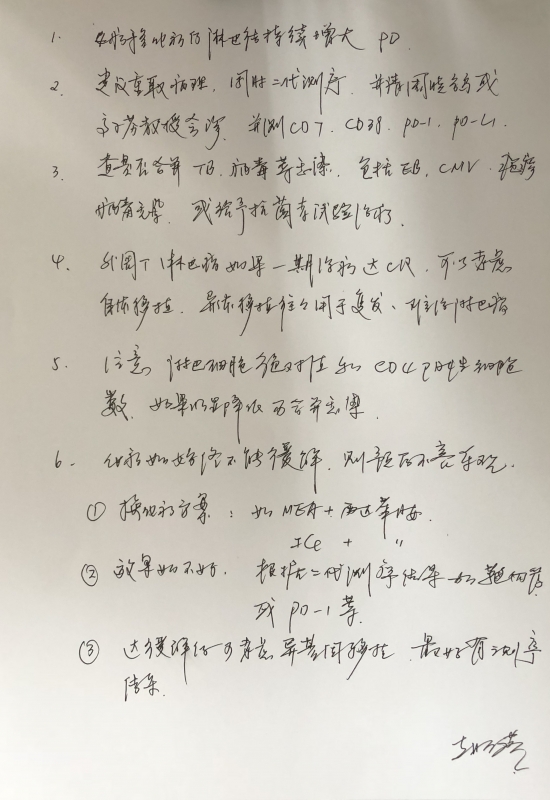 1. 如形移化初后淋巴结持续增大 PD.
2. 建议重取病理,同时二代测序,并请周晓鸽或
高子芬教授会诊,并测CD7. CD38. PD-1. PD-L1.
3. 查是否合并TB、病毒等感染,包括EB、CMV、
病毒 或给予抗菌素试验治疗.
4. 外周T淋巴瘤如果一期治疗达CR,可以考虑
自体移植,异体移植往往用于复发、难治淋巴瘤
5. 注意淋巴细胞绝对值和CD4阳性细胞
数,如果明显降低可合并感染.
6. 化疗如始终不能缓解,则预后不容乐观.
① 换化疗方案:如MEA+西达苯胺.
ICE + 〃
② 效果如不好,根据二代测序结果如靶向药
或PD-1等.
③ 达缓解后可考虑异基因移植,最好有测序
结果.